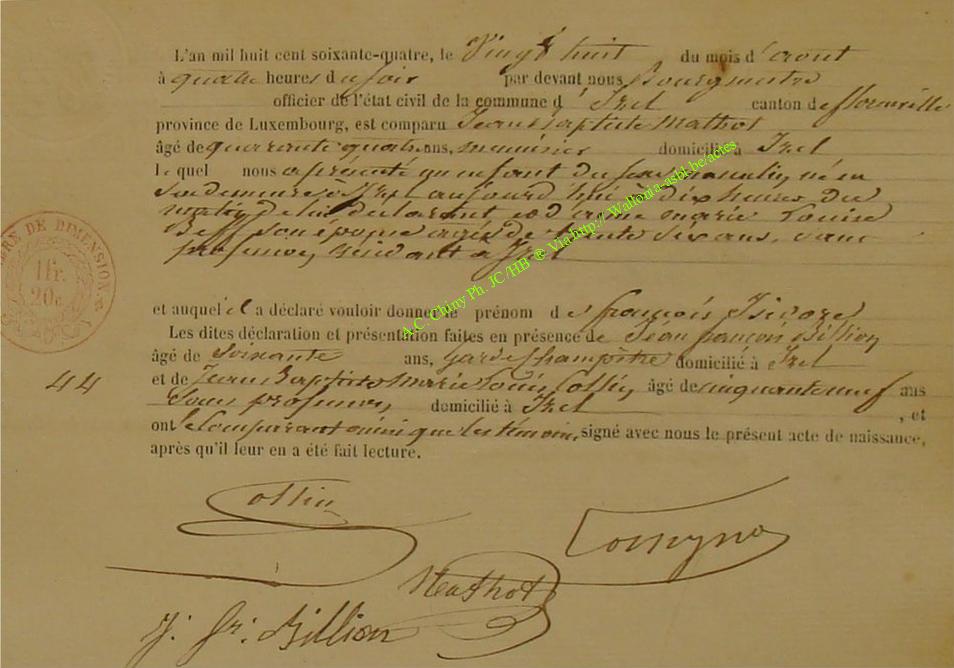 L'an mil huit cent soixante-quatre, le Vingt huit du mois d'aout
à quatre heures du soir par devant nous Bourgmestre
officier de l'état civil de la commune d'Izel canton de florenville
province de Luxembourg, est comparu Jean Baptiste Mathot
âgé de quarante quatre ans, menuisier domicilié à Izel
lequel nous a présenté un enfant du sexe masculin, né en
sa demeure à Izel aujourd'hui à dix heures du
matin, de lui declarant et de marie Louise
son épouse agée de trente six ans, sans
profession, résidant à Izel
et auquel il a déclaré vouloir donner le prénom de françois Isidore
Les dites déclaration et présentation faites en présence de Jean françois Billion
âgé de soixante ans, garde champêtre domicilié à Izel
44 et de Jean Baptiste Marie Louis Collin, âgé de cinquante neuf ans
sans profession, domicilié à Izel , et
ont le comparant ainsi que les témoins, signé avec nous le présent acte de naissance,
après qu'il leur en a été fait lecture.
Collin
Mathot
J. fr. Billion
DE DIMENSION
1 fr.
20c
A.C. Chiny Ph. JC /HB ® Via http:// Wallonia-asbl.be/actes